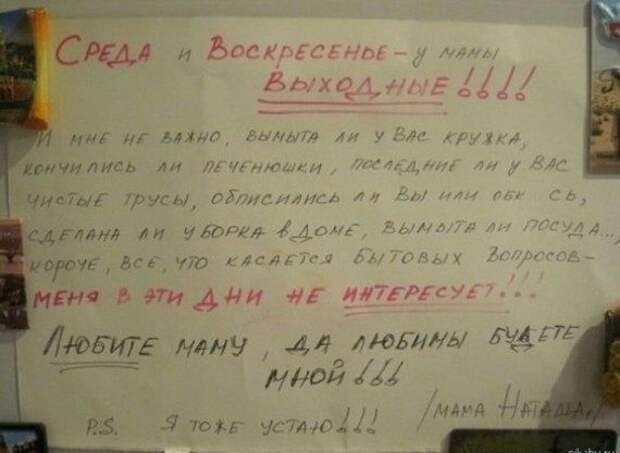 СРЕДА и ВОСКРЕСЕНЬЕ – У МАМЫ
ВЫХОДНЫЕ!!!!
И МНЕ НЕ ВАЖНО, ВЫМЫТА ЛИ У ВАС КРУЖКА,
КОНЧИЛИСЬ ЛИ ПЕЧЕНЮШКИ, ПОСЛЕДНИЕ ЛИ У ВАС
ЧИСТЫЕ ТРУСЫ, ОБПИСИЛИСЬ ЛИ ВЫ ИЛИ ОБК СЬ,
СДЕЛАНА ЛИ УБОРКА В ДОМЕ, ВЫМЫТА ЛИ ПОСУДА...,
КОРОЧЕ, ВСЕ, ЧТО КАСАЕТСЯ БЫТОВЫХ ВОПРОСОВ –
МЕНЯ В ЭТИ ДНИ НЕ ИНТЕРЕСУЕТ!!!
ЛЮБИТЕ МАМУ, ДА ЛЮБИМЫ БУДЕТЕ
МНОЙ!!!
/МАМА НАТАША./
P.S. Я ТОЖЕ УСТАЮ!!!
pikabu.ru